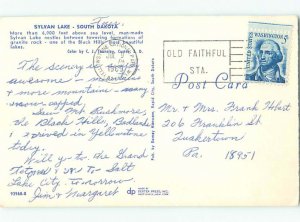 SYLVAN LAKE - SOUTH DAKOTA
More than 6,000 feet above sea level, man-made
Sylvan Lake nestles between towering formations of
granite rock - one of the Black Hills' most beautiful
lakes.
OLD FAITHFUL
STA.
WASHINGTON 5
The scenery is
awesome - mountains
& more mountains - many
snow capped.
Saw Mt Rushmore
the Black Hills, Badlands
& arrived in Yellowstone
today.
Will go to the Grand
Tetons & on to Salt
Lake City. tomorrow
Jim & Margaret
Post Card
Mr & Mrs. Frank Hobart
206 Franklin St
Quakertown
Pa. 18951
dp